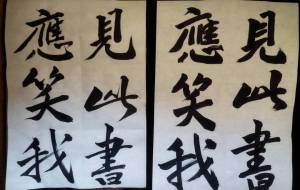 見此書
應笑我
見此書
應笑我